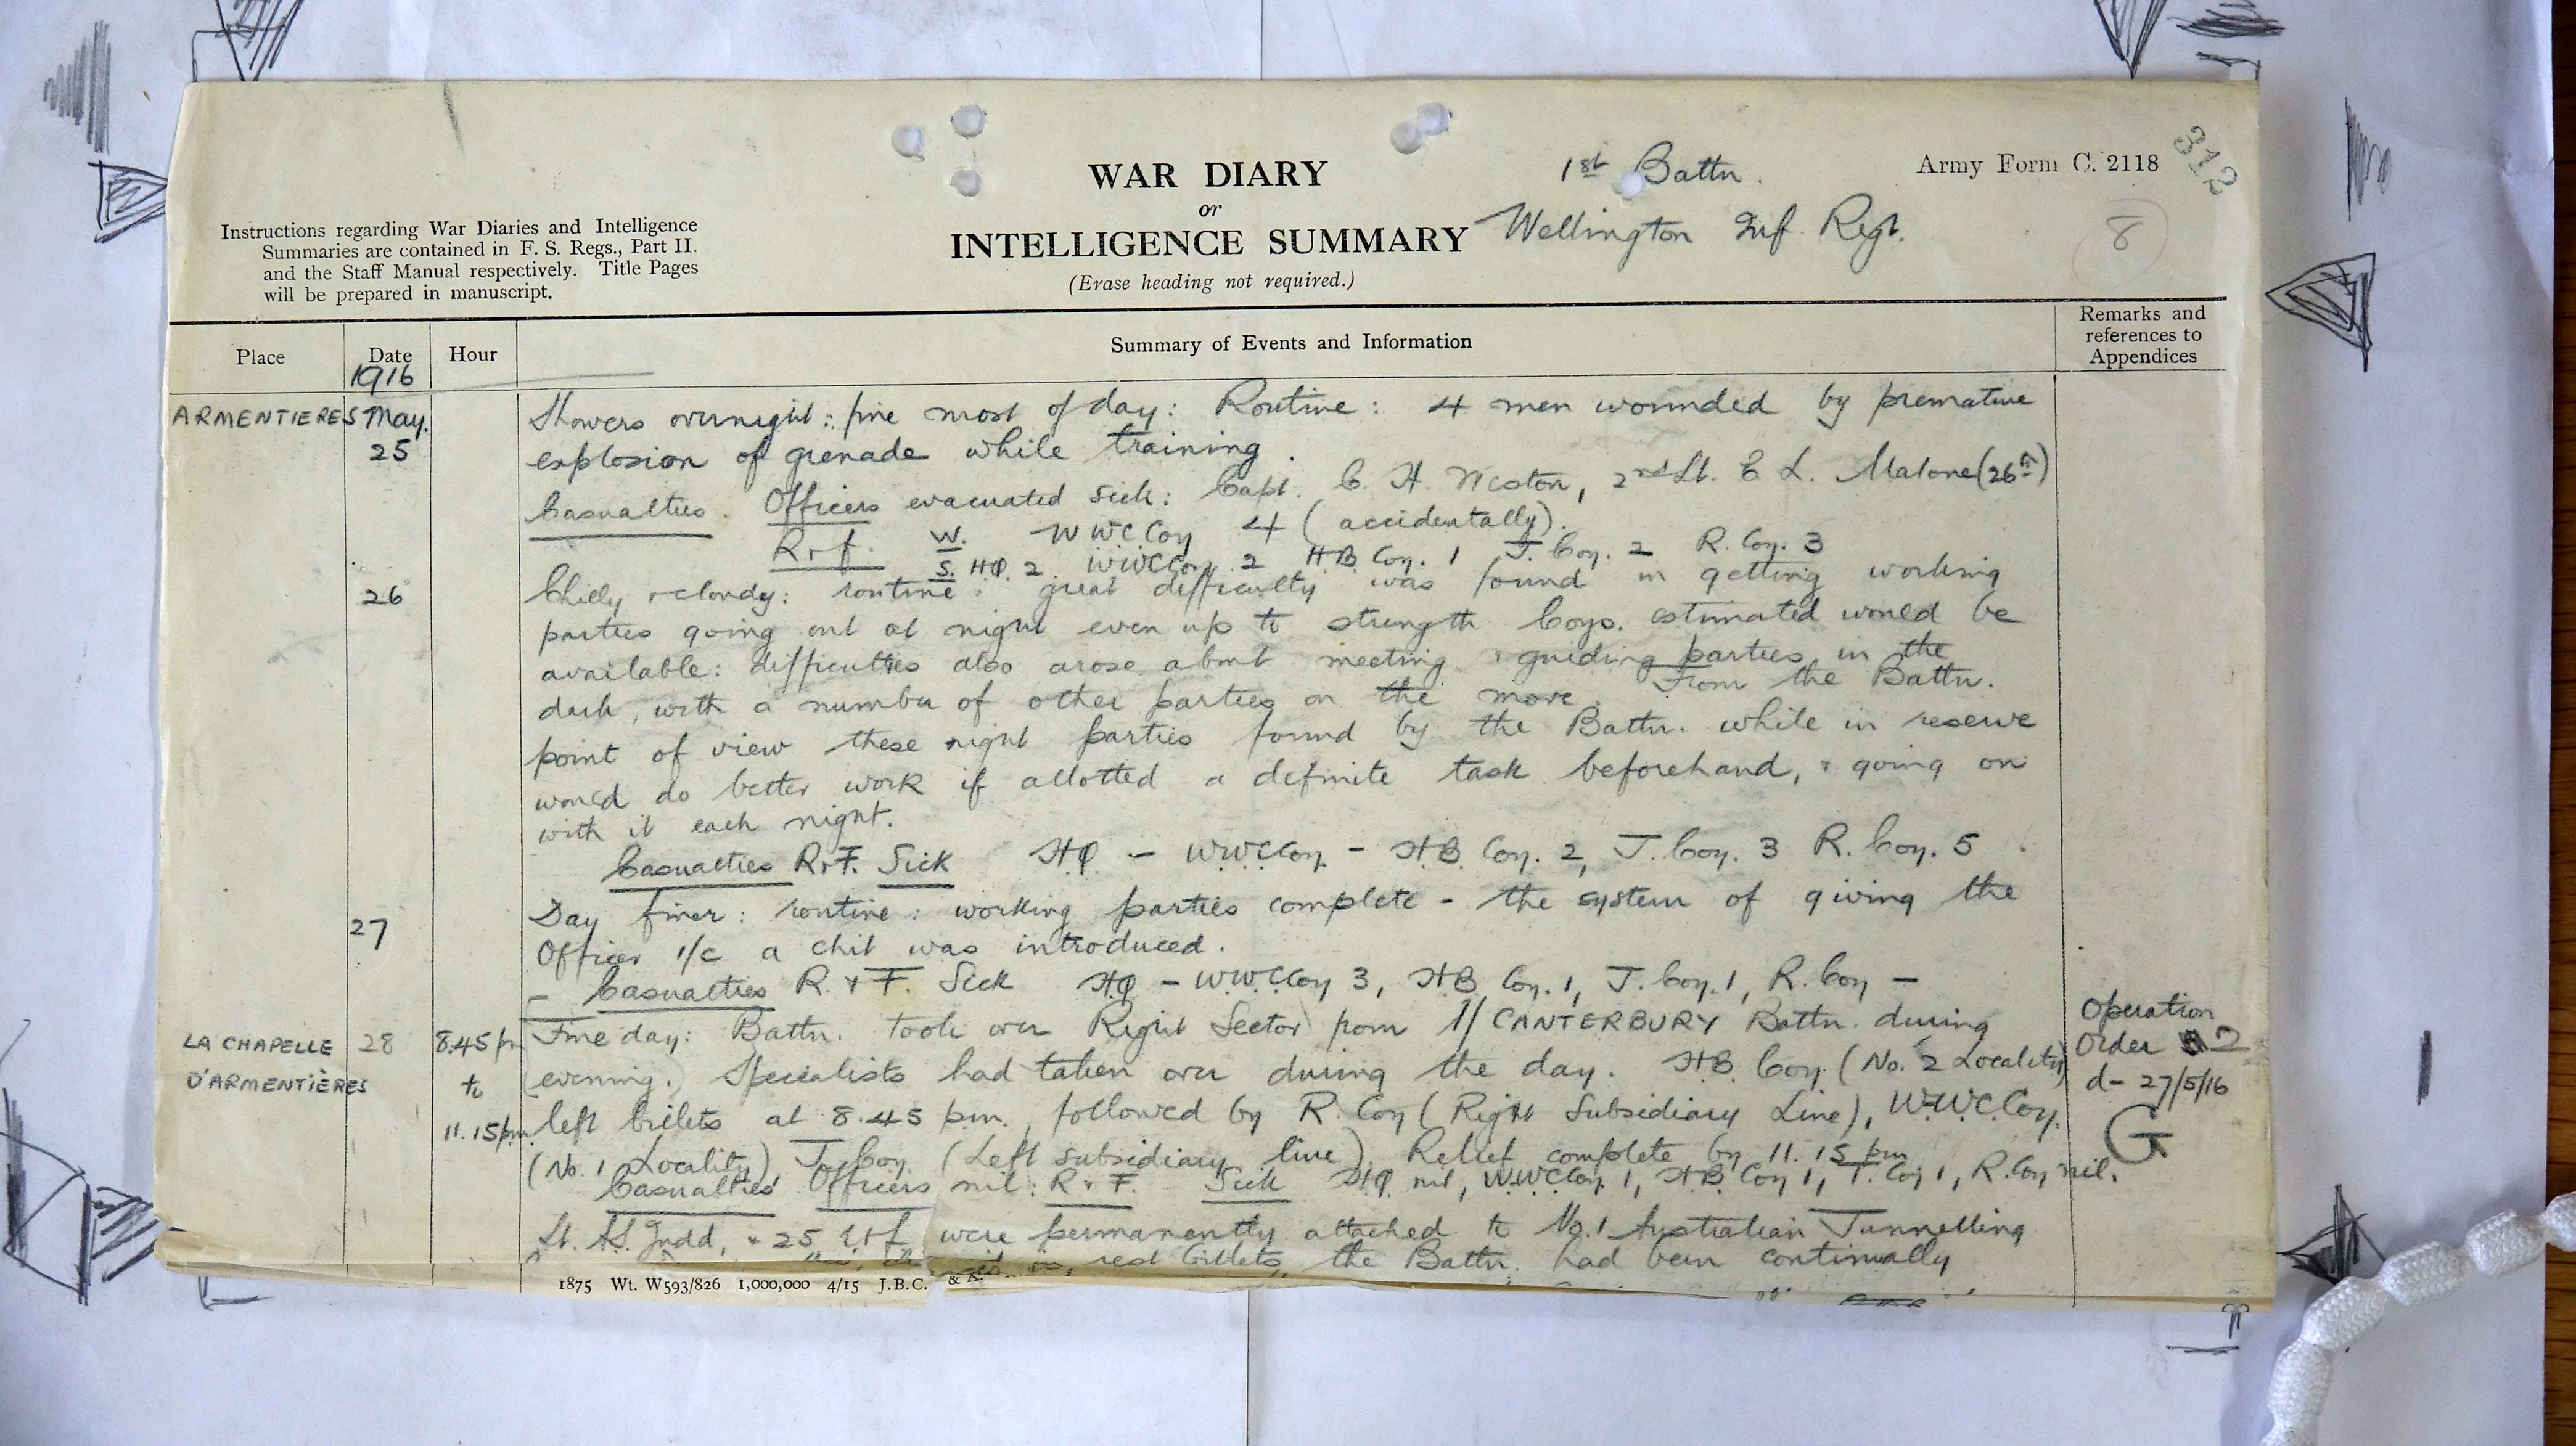 312
1st Battn.
Army Form C. 2118
WAR DIARY
or
INTELLIGENCE SUMMARY
Wellington Inf. Regt.
8
(Erase heading not required.)
Instructions regarding War Diaries and Intelligence
Summaries are contained in F. S. Regs., Part II.
and the Staff Manual respectively. Title Pages
will be prepared in manuscript.
Place
Date
Hour
Summary of Events and Information
Remarks and
references to
Appendices
1916
ARMENTIERES May. Showers overnight: fine most of day: Routine: 4 men wounded by premature
25 explosion of grenade while training.
Casualties. Officers evacuated sick: Capt. C. H. Weston, 2nd Lt. E L. Malone (26th)
R+f. W. WWCCoy 4 (accidentally).
S. HQ. 2 WWCCoy. 2 HB Coy. 1 T. Coy. 2 R. Coy. 3
26 Chilly + cloudy: routine: great difficulty was found in getting working
parties going out at night even up to strength Coys. estimated would be
available: difficulties also arose about meeting + guiding parties in the
dark, with a number of other parties on the move. From the Battn.
point of view these night parties found by the Battn. while in reserve
would do better work if allotted a definite task beforehand, + going on
with it each night.
Casualties R+F. Sick HQ - WWCCoy - HB Coy. 2, T. Coy. 3 R. Coy. 5
27 Day finer: routine: working parties complete - the system of giving the
Officer i/c a chit was introduced.
- Casualties R. + F. Sick HQ - WWCCoy 3, HB Coy. 1, T. Coy. 1, R. Coy -
LA CHAPELLE 28 8.45 pm Fine day: Battn. took over Right Sector from 1/ CANTERBURY Battn. during
D'ARMENTIÈRES to (evening.) Specialists had taken over during the day. HB Coy. (No. 2 Locality)
11.15pm. left billets at 8.45 pm., followed by R. Coy (Right Subsidiary Line), WWCCoy.
(No. 1 Locality), T. Coy. (Left subsidiary line). Relief complete by 11.15 pm
Casualties Officers nil: R + F. Sick HQ nil, WWCCoy. 1, HB Coy 1, T. Coy 1, R. Coy nil.
Operation
Order 2
d- 27/5/16
G
Lt. Judd, + 25 were permanently attached to No. 1 Australian Tunnelling
rest billets, the Battn. had been continually
1875 Wt. W593/826 1,000,000 4/15 J.B.C. & A.